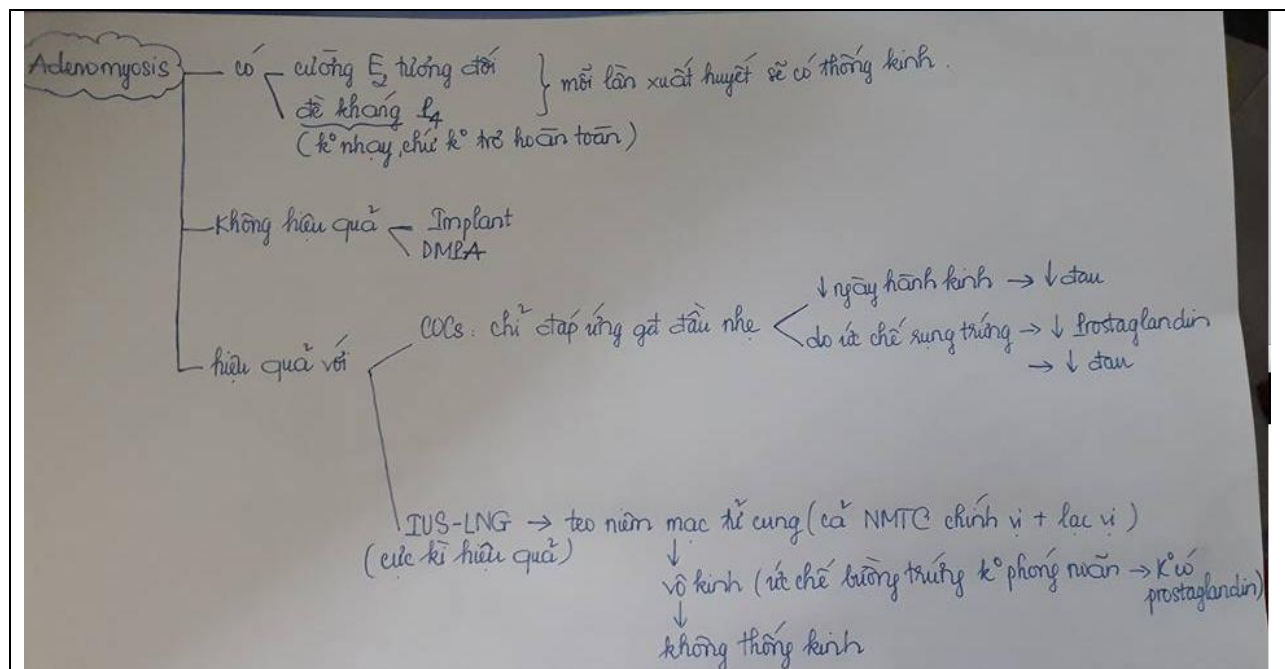 Adenomyosis
có
cường E2 tương đối
đề kháng P4
(k° nhạy, chứ k° trơ hoàn toàn)
mỗi lần xuất huyết sẽ có thống kinh.
Không hiệu quả
Implant
DMPA
hiệu quả với
COCs: chỉ đáp ứng gđ đầu nhẹ
↓ ngày hành kinh → ↓ đau
do ức chế rụng trứng → ↓ Prostaglandin
→ ↓ đau
IUS-LNG → teo niêm mạc tử cung (cả NMTC chính vị + lạc vị)
(cực kì hiệu quả)
↓
vô kinh (ức chế buồng trứng k° phóng noãn → K° có
prostaglandin)
↓
không thống kinh